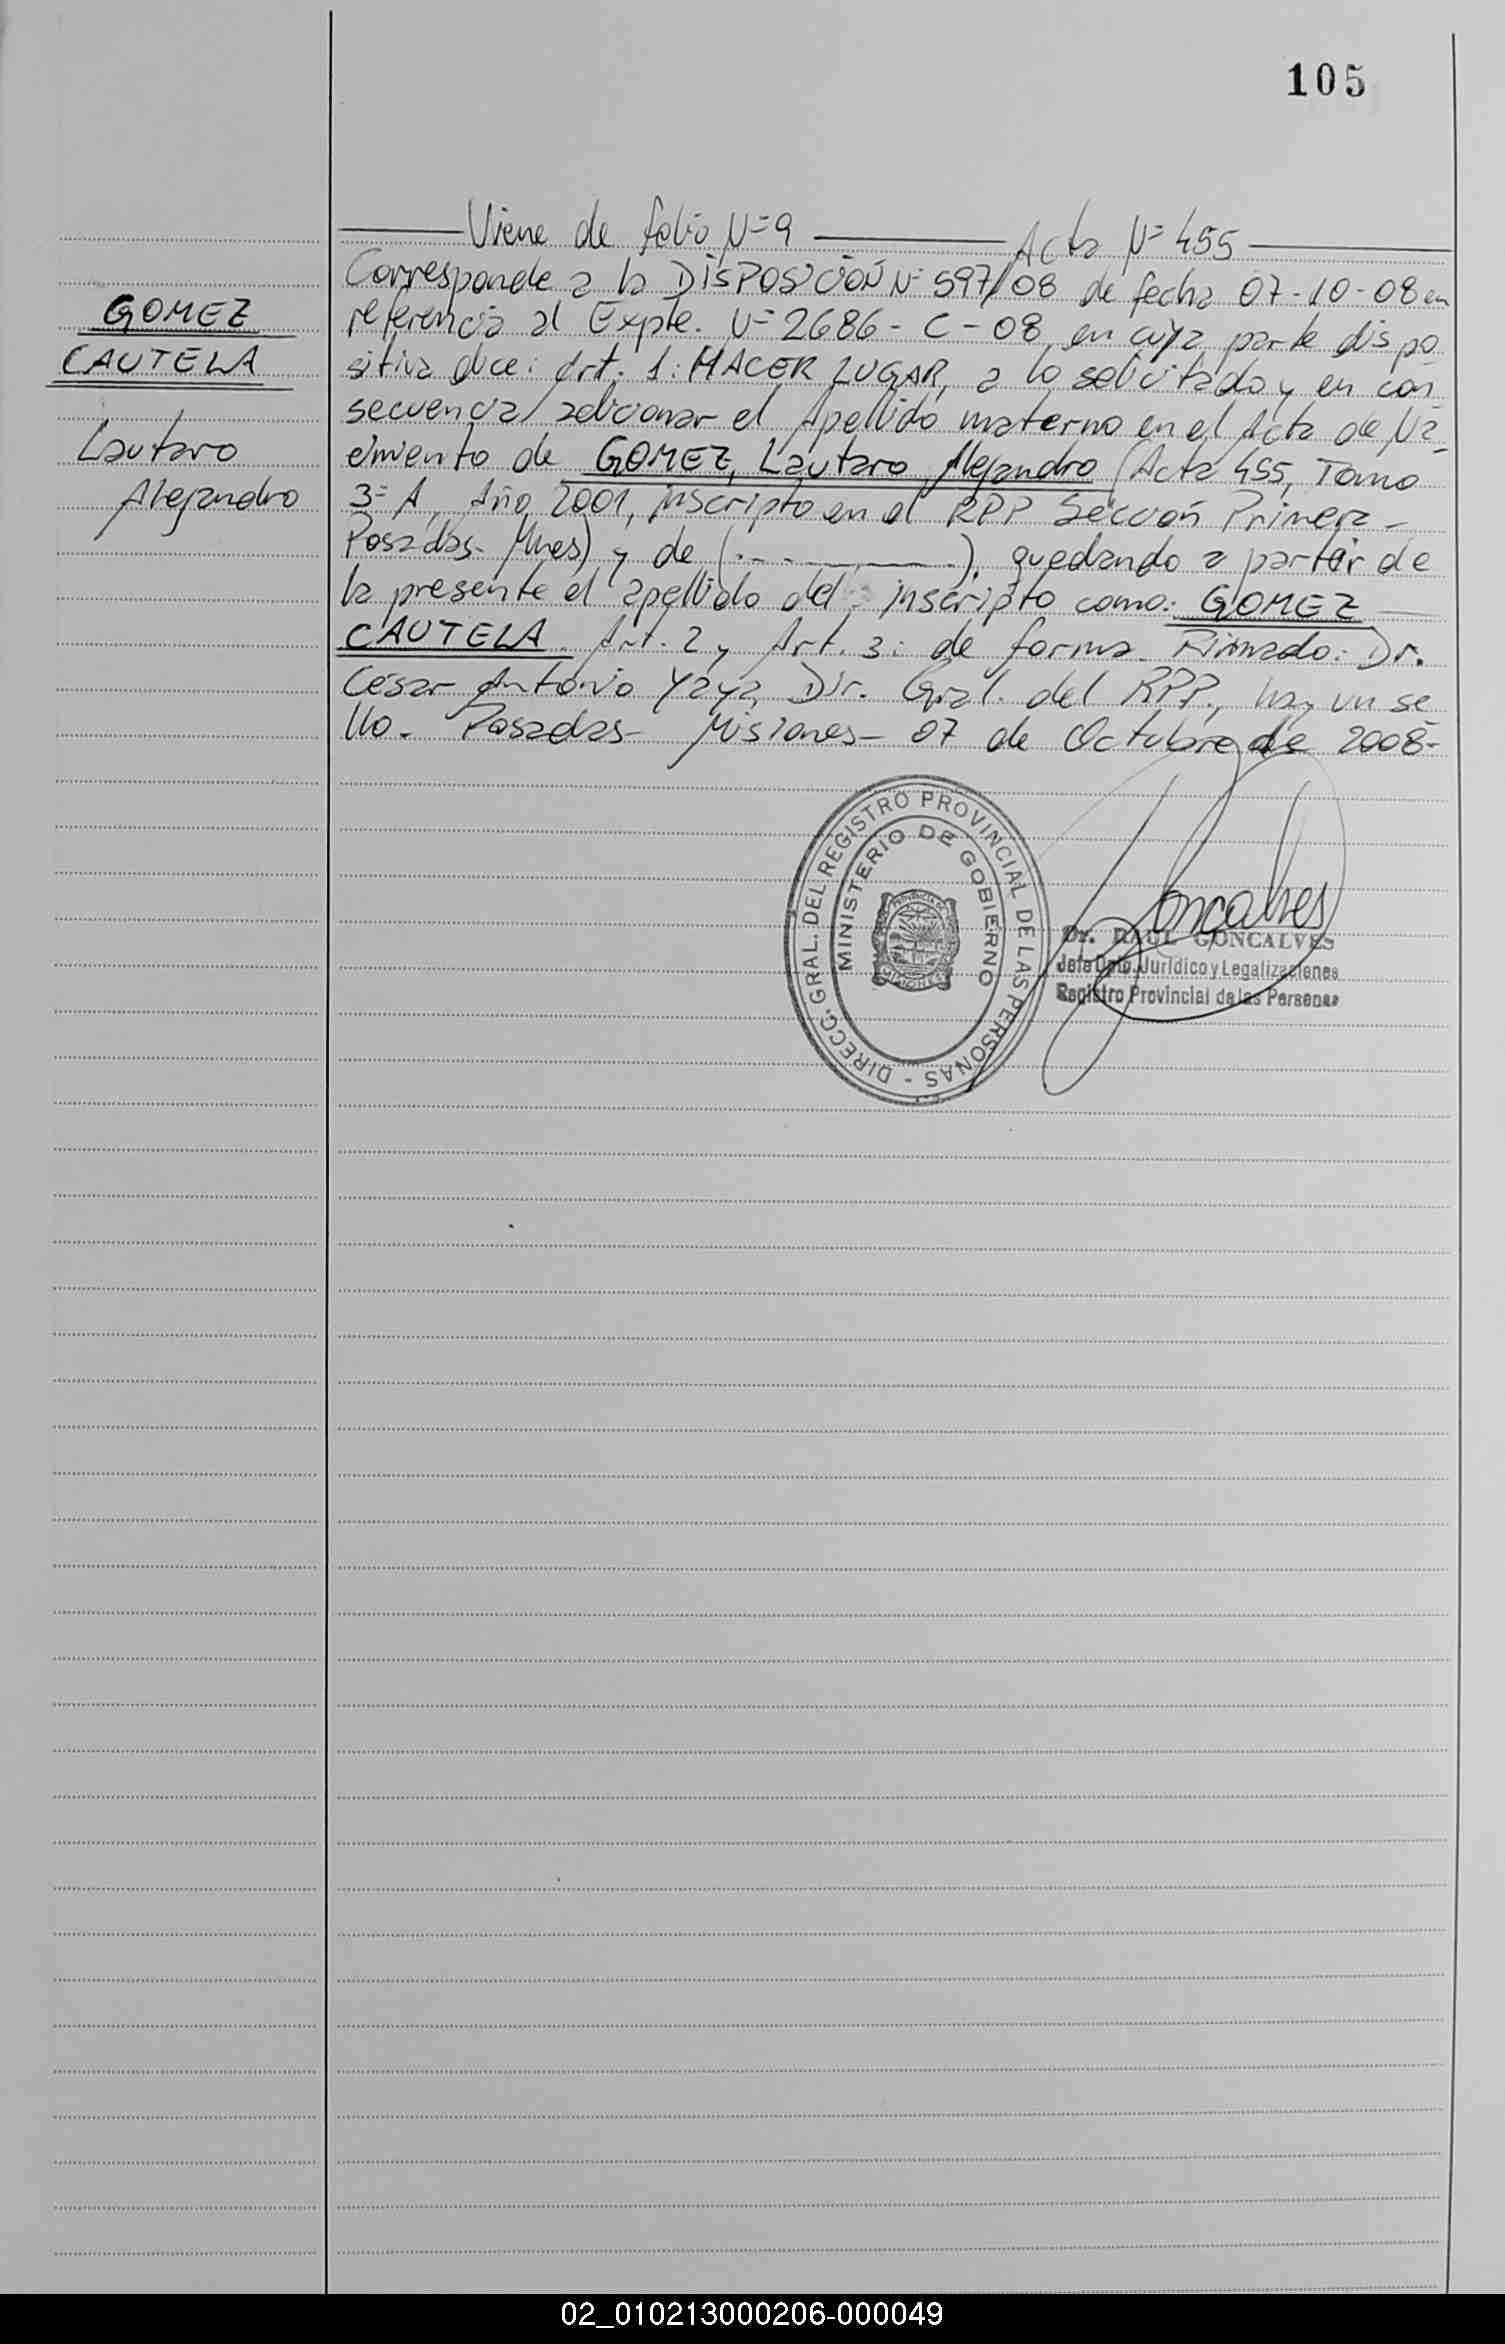 105
Viene de folio Nº 9 Acta Nº 455
GOMEZ
CAUTELA
Lautaro
Alejandro
Corresponde a la DISPOSICIÓN Nº 597/08 de fecha 07-10-08 en
referencia al Expte. Nº 2686-C-08, en cuya parte dispo
sitiva dice: Art. 1: HACER LUGAR, a lo solicitado y en con
secuencia adicionar el Apellido materno en el Acta de Na
cimiento de GOMEZ, Lautaro Alejandro (Acta 455, Tomo
3º A, Año 2001, inscripto en el RPP Sección Primera-
Posadas- Mnes) y de (.-.-.), quedando a partir de
la presente el apellido del inscripto como: GOMEZ
CAUTELA. Art. 2 y Art. 3: de forma. Firmado: Dr.
Cesar Antonio Yaya, Dir. Gral. del RPP., hay un se
llo. Posadas- Misiones- 07 de Octubre de 2008-
DIRECC. GRAL. DEL REGISTRO PROVINCIAL DE LAS PERSONAS -
MINISTERIO DE GOBIERNO
PROVINCIA DE
MISIONES
Goncalves
Dr. RAUL GONCALVES
Jefe Dpto. Jurídico y Legalizaciones
Registro Provincial de las Personas
02_010213000206-000049